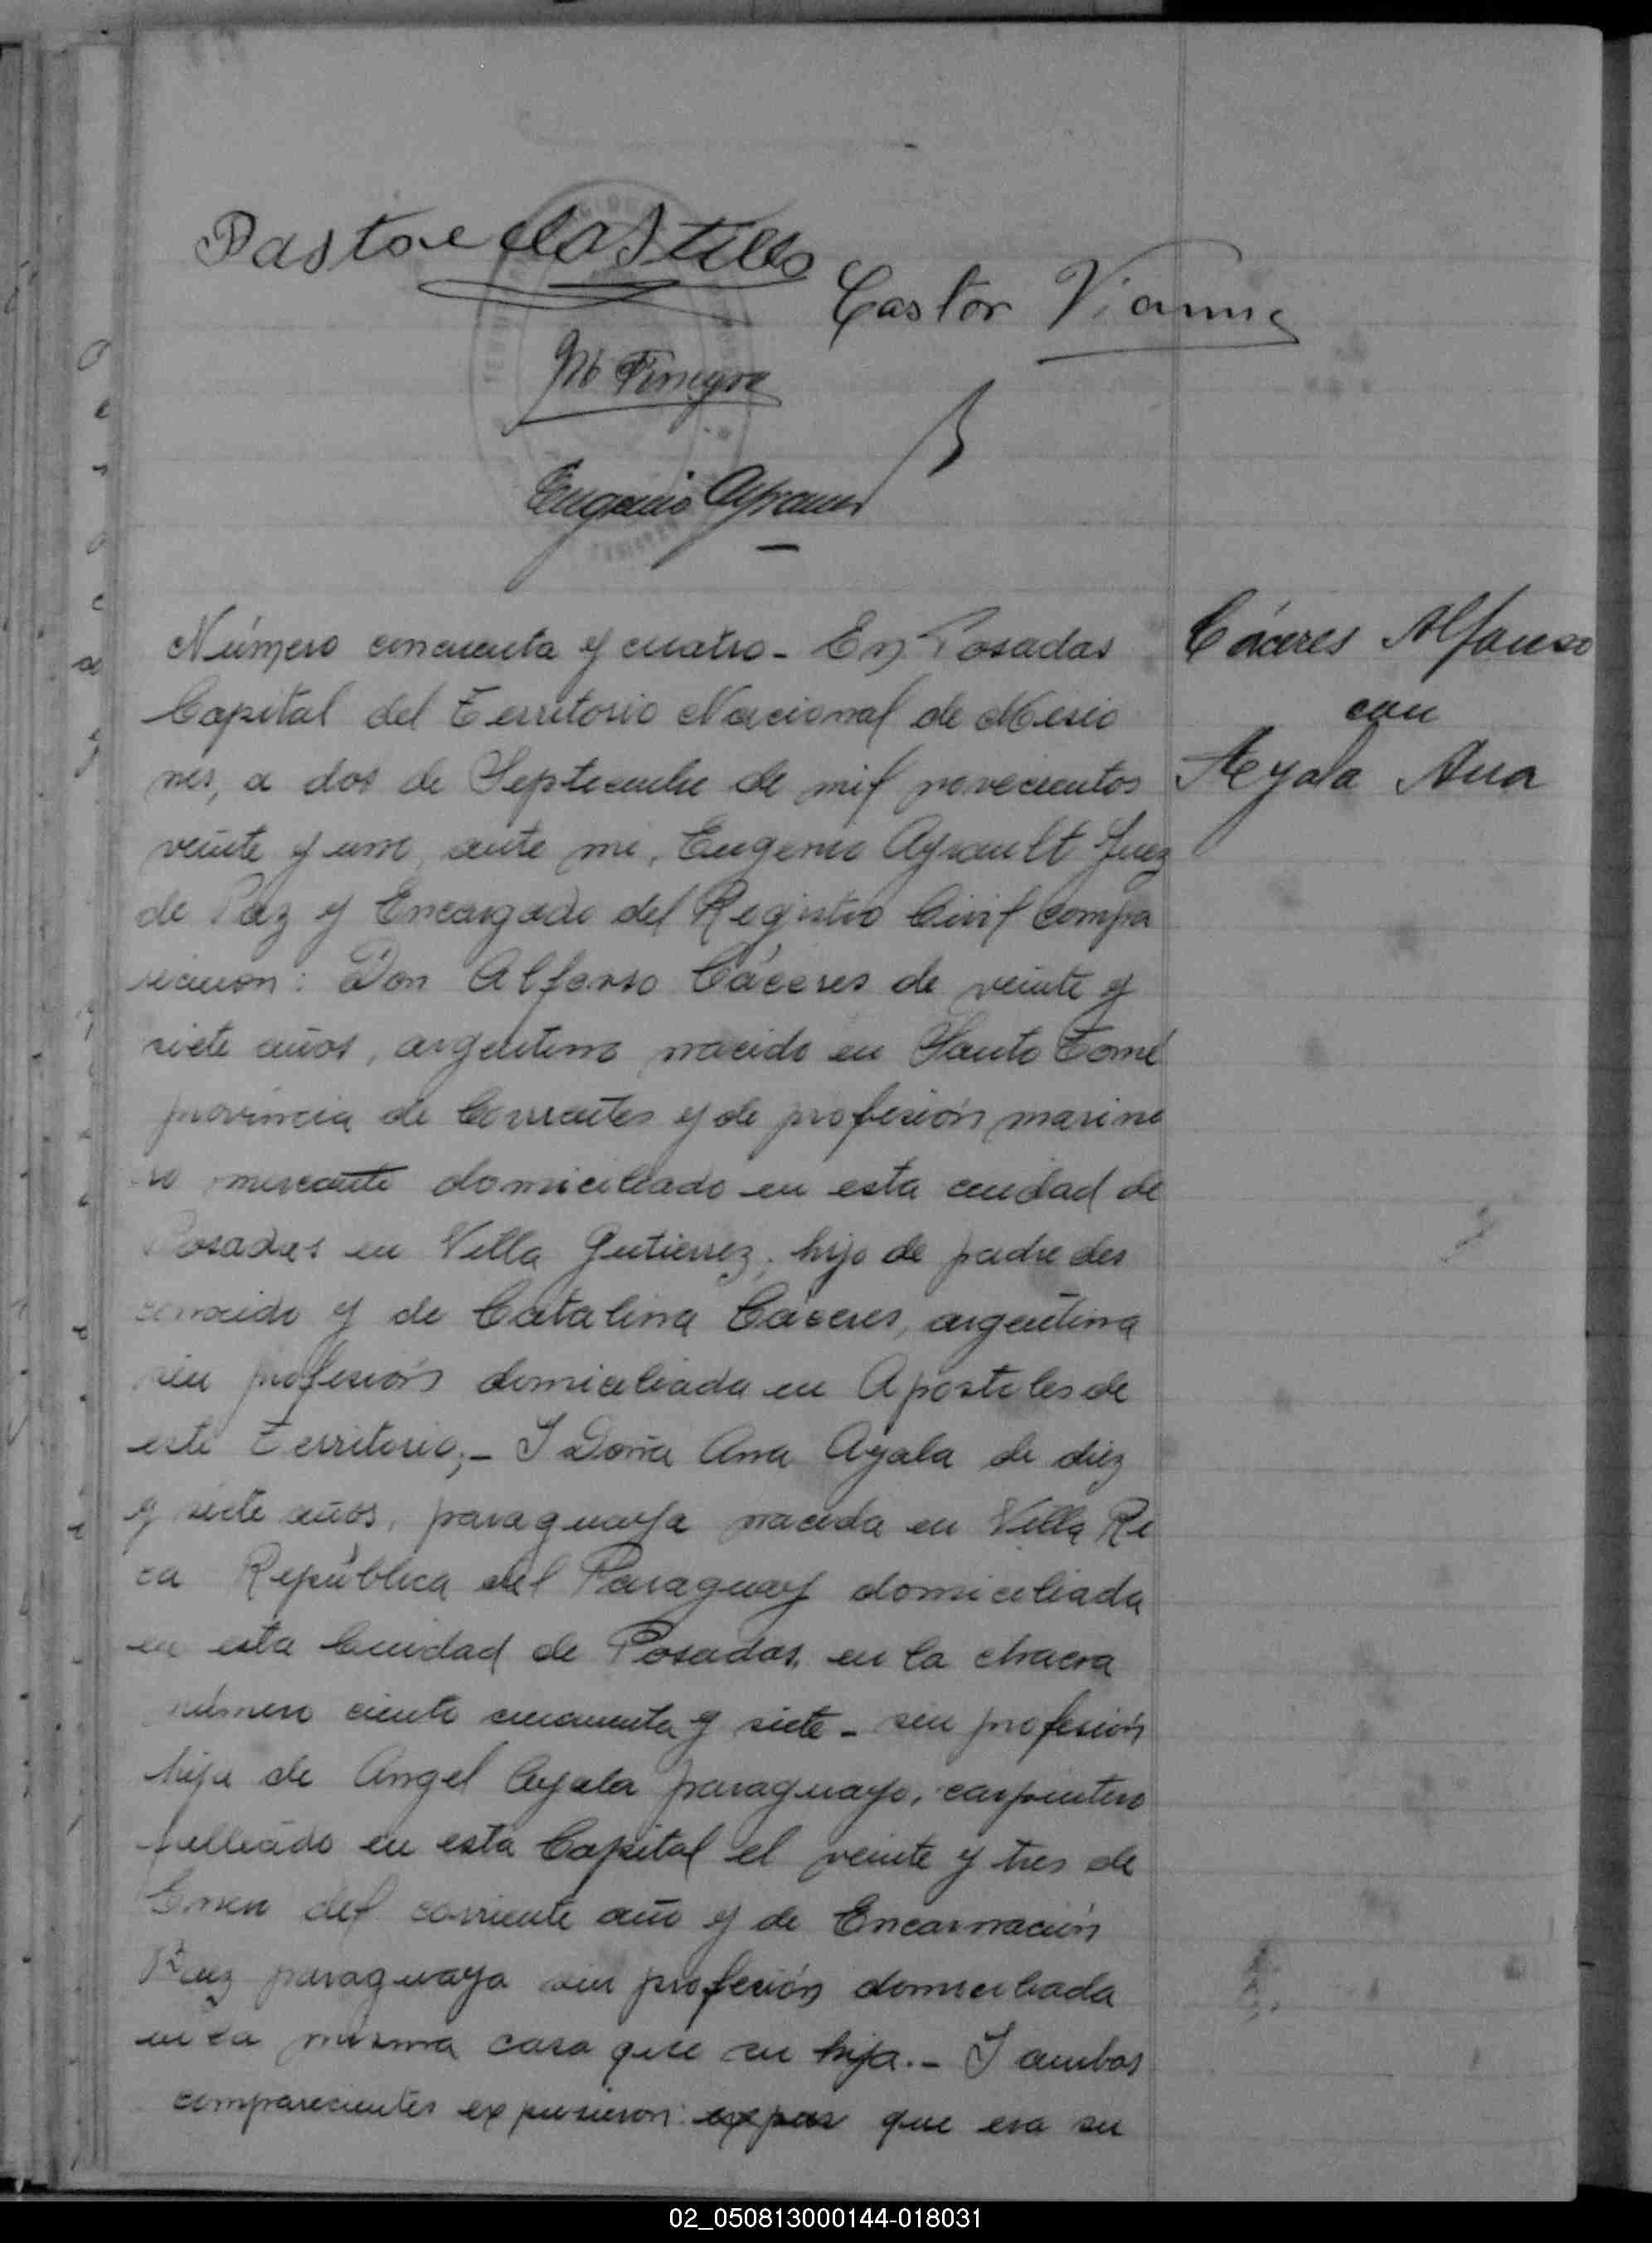 Pastor Castillo
Castor Vianna
M
Eugenio Ayrault
Número cincuenta y cuatro - En Posadas
Cáceres Alfonso
con
Ayala Ana
Capital del Territorio Nacional de Misio
nes, a dos de Septiembre de mil novecientos
veinte y uno, ante mi, Eugenio Ayrault Juez
de Paz y Encargado del Registro Civil compa
recieron: Don Alfonso Cáceres de veinte y
siete años, argentino nacido en Santo Tomé
provincia de Corrientes y de profesión marine
ro mercante domiciliado en esta ciudad de
Posadas en Villa Gutierrez, hijo de padre des
conocido y de Catalina Cáceres, argentina
sin profesión domiciliada en Apostoles de
este Territorio;- I Doña Ana Ayala de diez
y siete años, paraguaya nacida en Villa Ri
ca República del Paraguay domiciliada
en esta Ciudad de Posadas, en la chacra
número ciento cincuenta y siete - sin profesión
hija de Angel Ayala paraguayo, carpintero
fallecido en esta Capital el veinte y tres de
Enero del corriente año y de Encarnación
paraguaya sin profesión domiciliada
en la misma casa que su hija.- I ambos
comparecientes expusieron: que era su
02_050813000144-018031